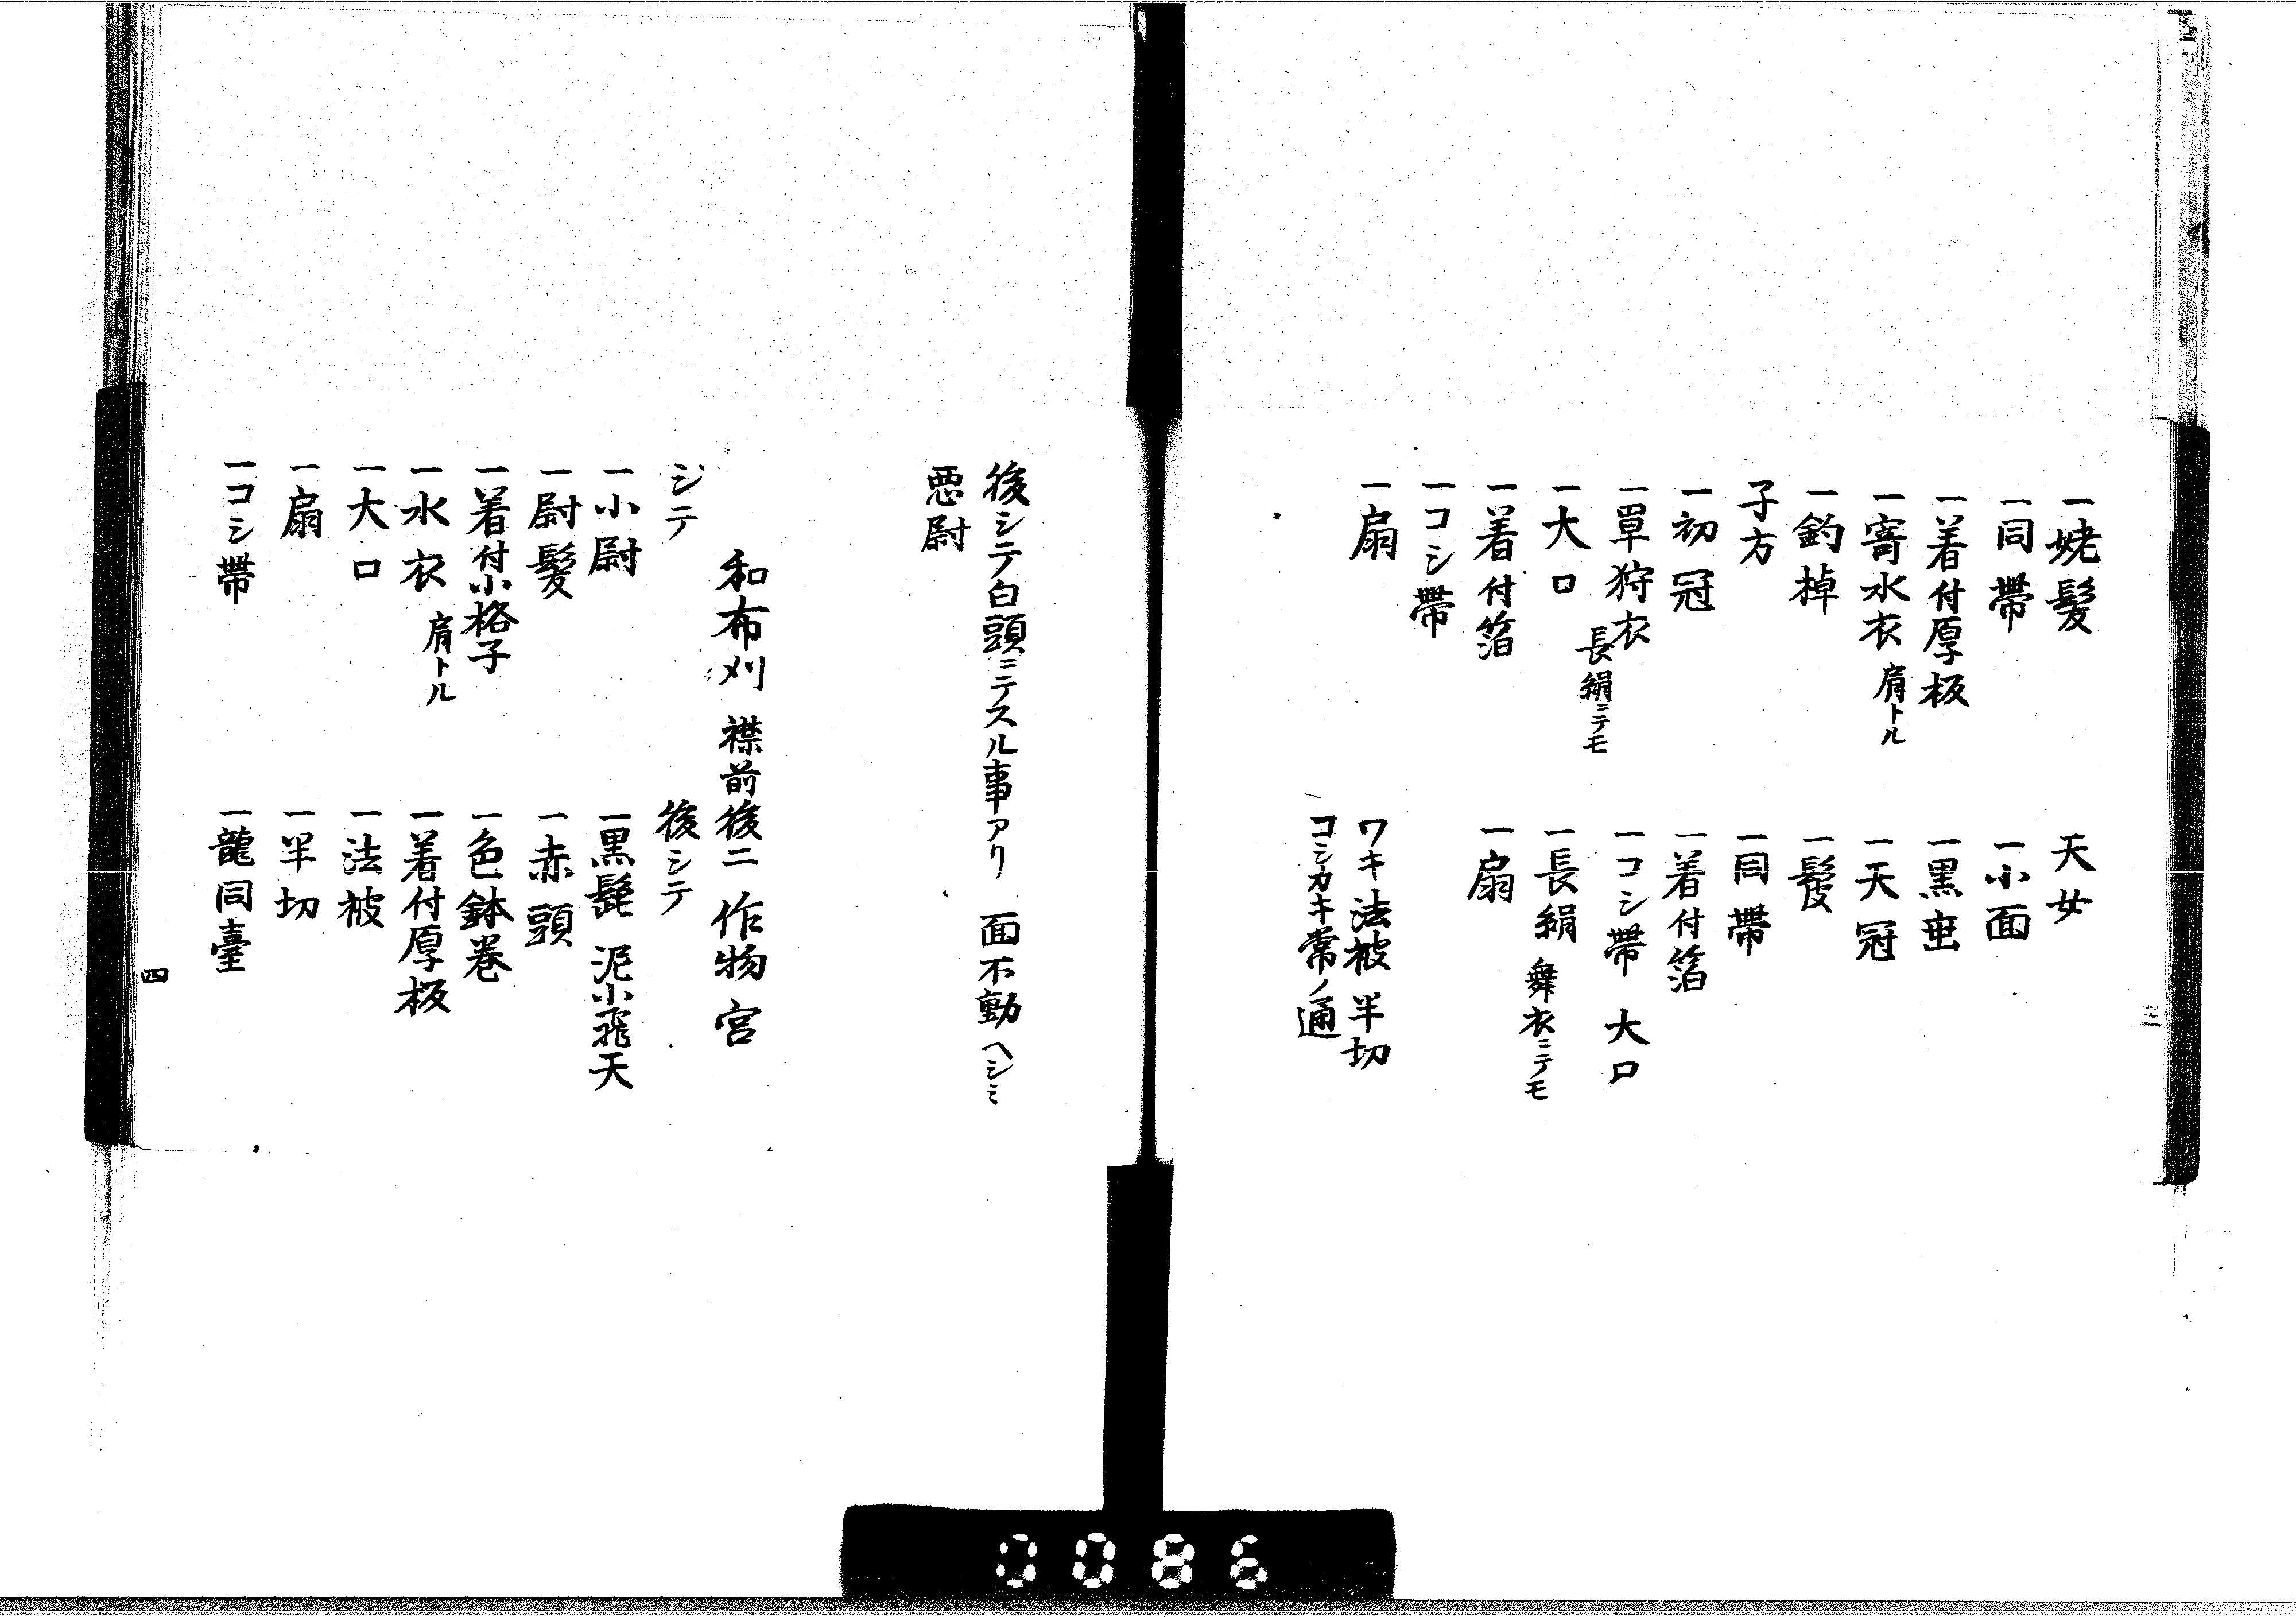 一姥髪
一同帶
一着付厚板
一寄水衣 肩トル
一釣棹
子方
一初冠
一單狩衣 長絹ニテモ
一大口
一着付箔
一コシ帶
一扇
天女
一小面
一黒垂
一天冠
一鬘
一同帶
一着付箔
一コシ帶 大口
一長絹 舞衣ニテモ
一扇
ワキ法被 半切
コシカキ常ノ通
三
後シテ白頭ニテスル事アリ 面不動 ヘシミ
悪尉
和布刈 襟前後ニ 作物 宮
シテ
一小尉
一尉髪
一着付小格子
一水衣 肩トル
一大口
一扇
一コシ帶
後シテ
一黒髭 泥小飛天
一赤頭
一色鉢巻
一着付厚板
一法被
一半切
一龍同臺
四
0086